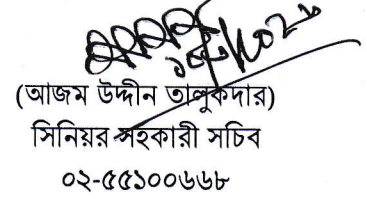 (আজম উদ্দীন তালুকদার)
সিনিয়র সহকারী সচিব
০২-৫৫১০০৬৬৮